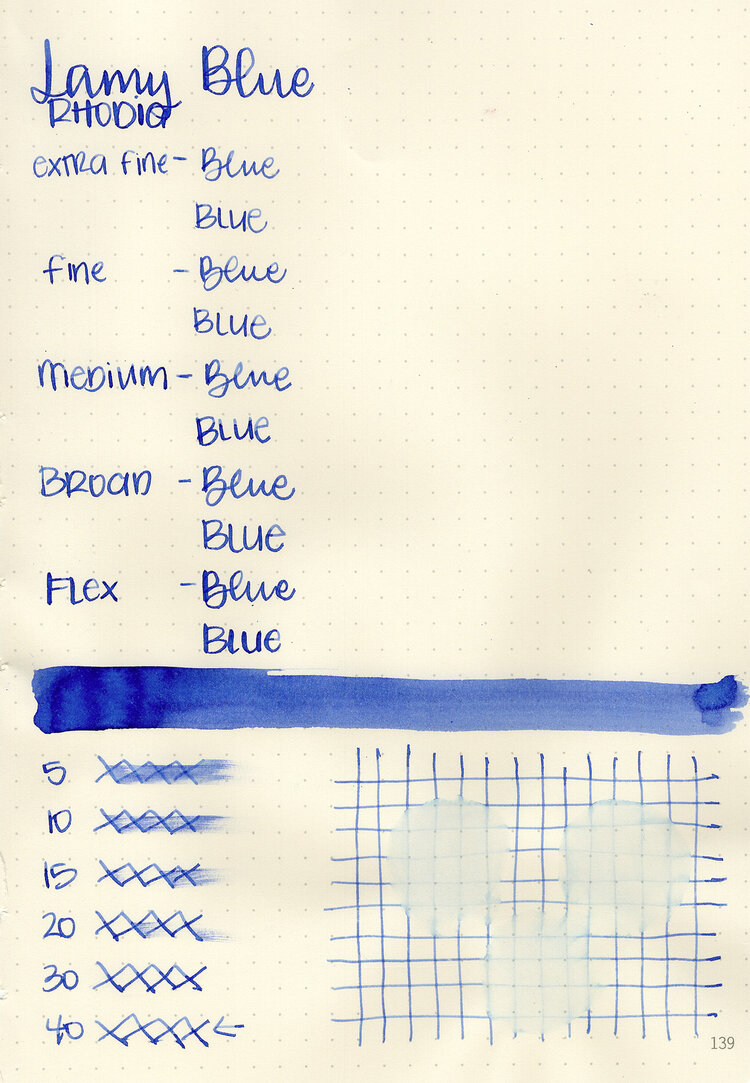 Lamy Blue
RHODIA
extra fine - Blue
BLUE
fine - Blue
BLUE
medium - Blue
BLUE
BROAD - Blue
BLUE
FLEX - Blue
BLUE
5
10
15
20
30
40 ←
139